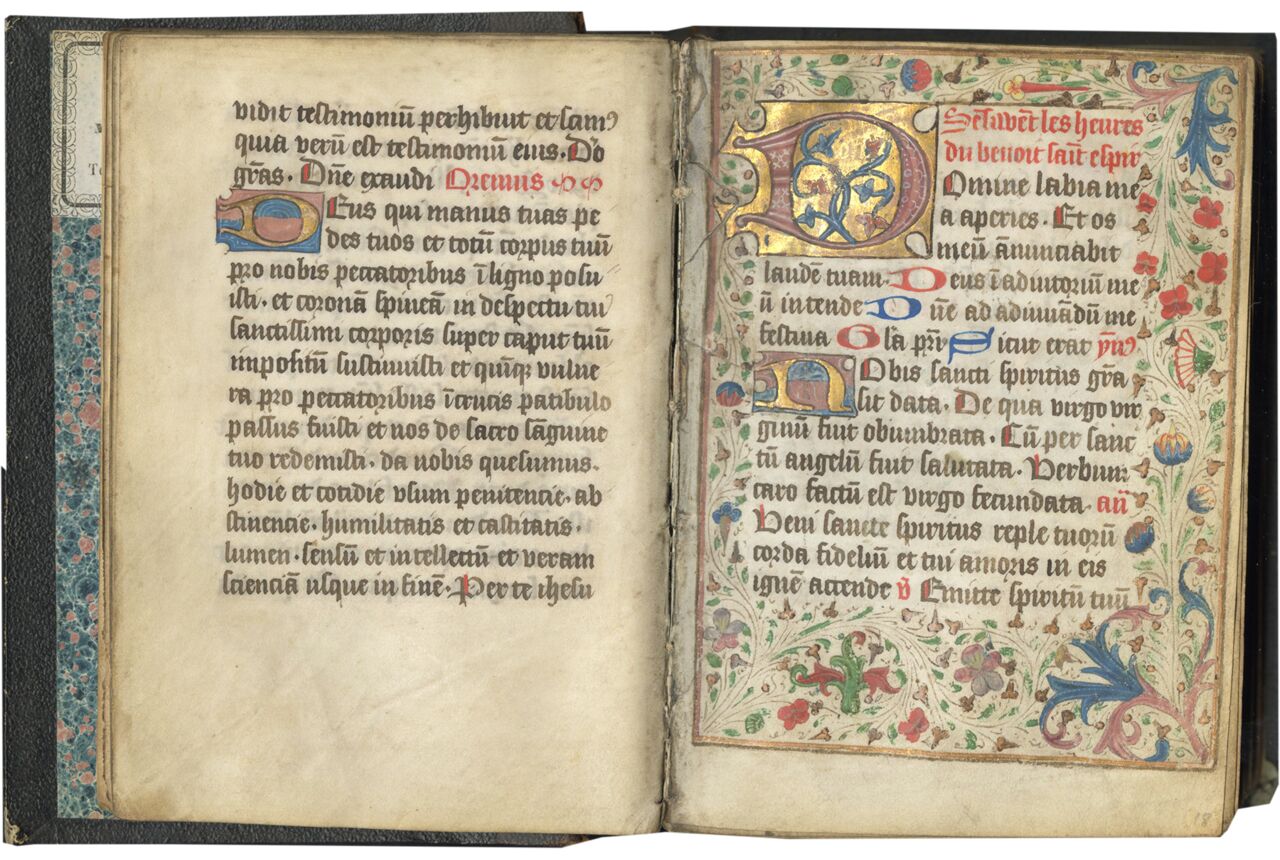 vidit testimoniũ perhibuit et scim⁹
quia verũ est testimoniũ eius. Do
grãs. Dñe exaudi Oremus
Deus qui manus tuas pe
des tuos et totũ corpus tuũ
pro nobis peccatoribus ĩ ligno posu
isti. et coronã spineã in despectu tui
sanctissimi corporis super caput tuũ
impositũ sustinuisti et quiq̃ vulne
ra pro peccatoribus ĩ crucis patibulo
passus fuisti et nos de sacro sãguine
tuo redemisti. da nobis quesumus.
hodie et cotidie vsum penitencie. ab
stinencie. humilitatis et castitatis.
lumen. sensũ et intellectũ et veram
scienciã usque in finẽ. Per te ihesu
Sẽsiuẽt les heures
du benoit saĩt espir
Domine labia me
a aperies. Et os
meũ ãnunciabit
laudẽ tuam. Deus ĩ adiutoriũ me
ũ intende Dñe ad adiuuãdũ me
festina Gla p̃ri Sicut erat ỹn⁹
Nobis sancti spiritus grã
sit data. De qua virgo vir
ginũ fuit obumbrata. Cũ per sanc
tũ angelũ fuit salutata. Verbum
caro factũ est virgo fecundata. añ
Veni sancte spiritus reple tuorũ
corda fideliũ et tui amoris in eis
ignẽ accende ṽ Emitte spiritũ tuũ
18